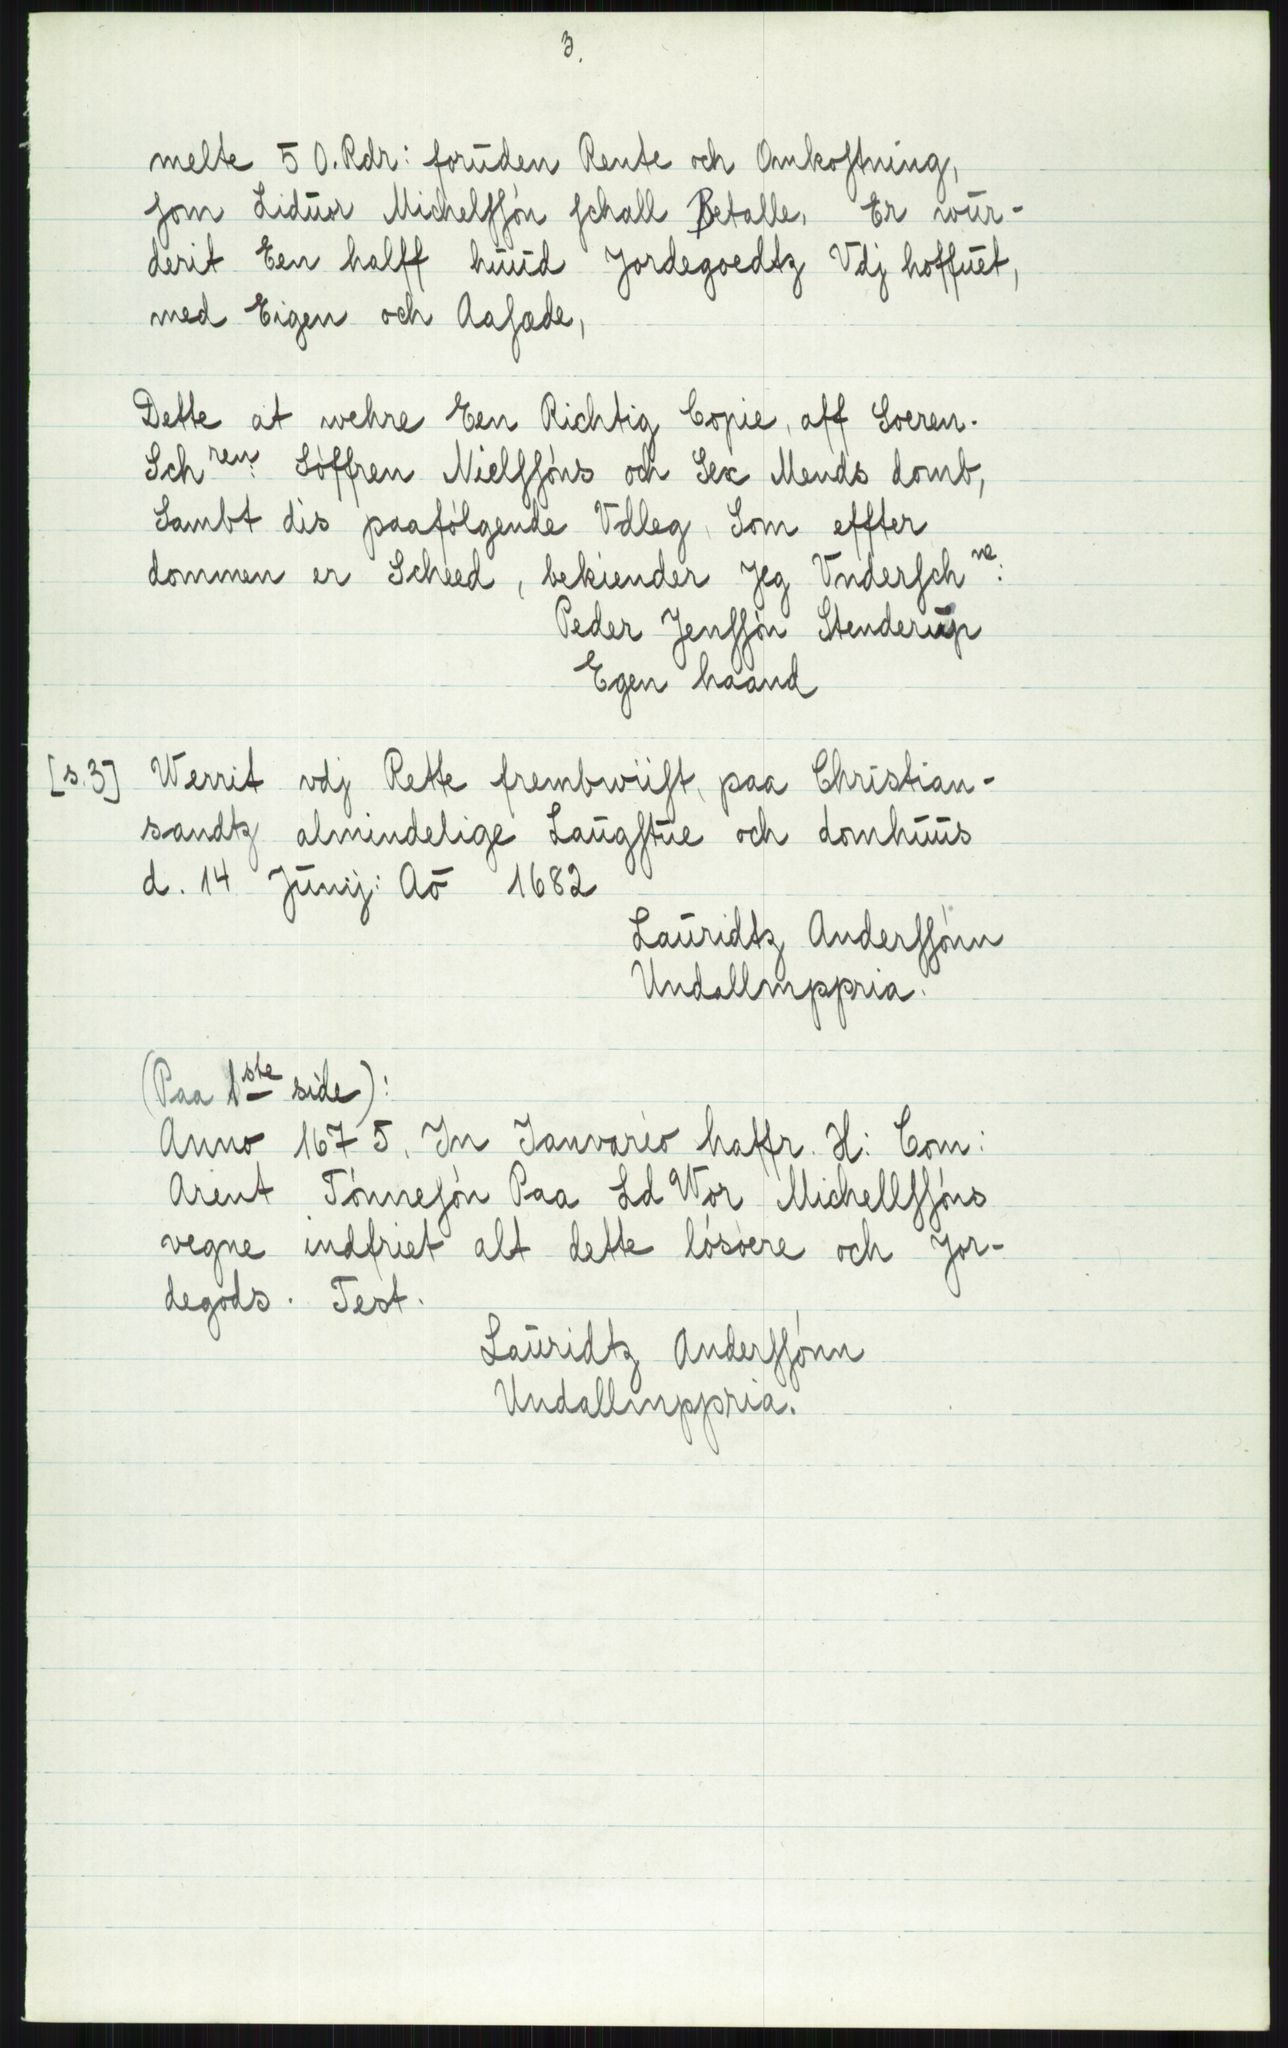 3.
melte 50. Rdr: foruden Rente och Omkostning,
som Liduor Michelssøn schall Betalle, Er wur-
derit Een halff huud Jordegoedtz Vdj hoffuet,
med Eigen och Aasæde,
Dette at wehre Een Richtig Copie, aff Soeren-
Sch ren: Søffren Nielssøns och Sex Mends domb,
Sambt dis paafølgende Vdleg, Som effter
dommen er Scheed, bekiender Jeg Vndersch ne:
Peder Jenssøn Stenderup
Egen haand
[s.3] Werrit vdj Rette frembwiist, paa Christian-
sandtz almindelige Laugstue och domhuus
d. 14 Junij: Aō 1682
Lauridtz Anderssønn
Undallmppria.
(Paa 1ste side):
Anno 1675, In Ianvario haffr. H: Com:
Arent Tønnesøn Paa Ld Wor Michellssøns
vegne indfriet alt dette løsøere och Jor-
degods. Test.
Lauridtz Anderssønn
Undallmppria.